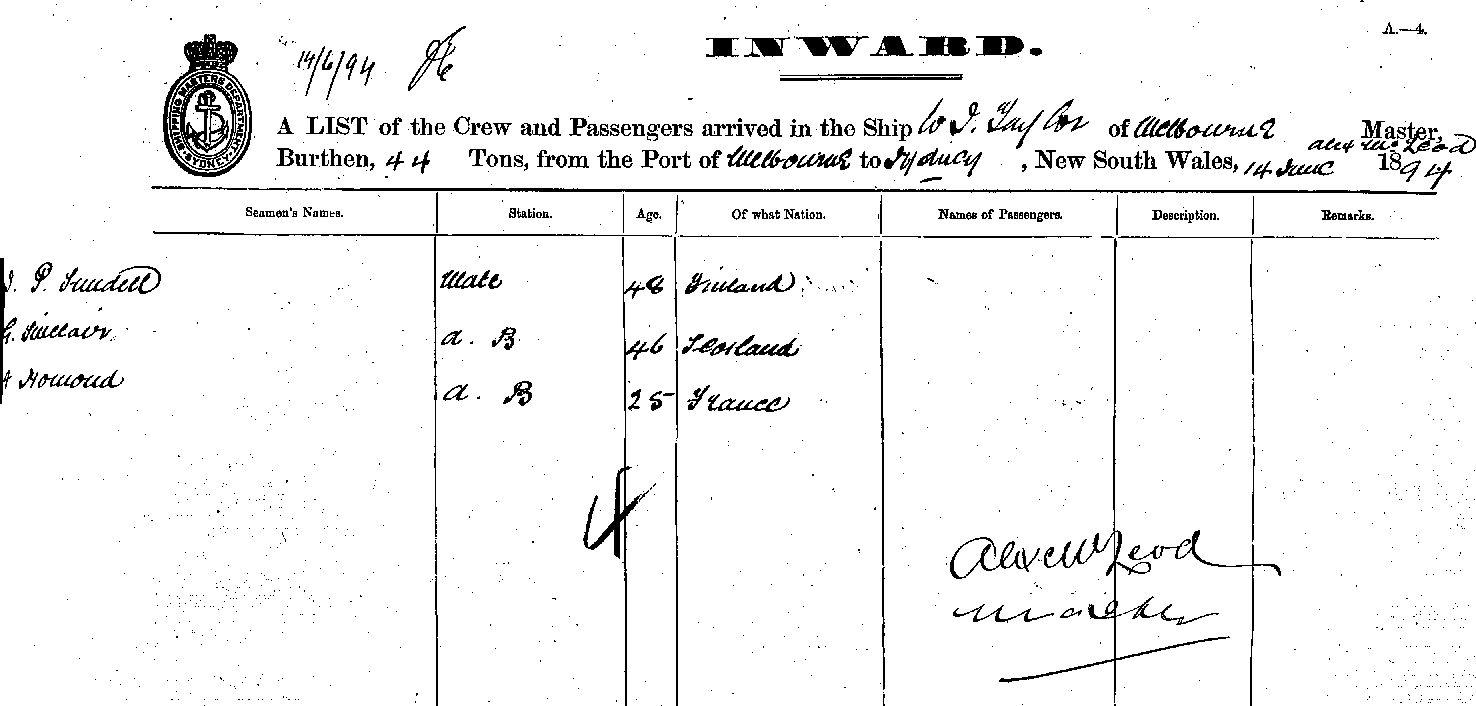 A.—4.
INWARD.
14/6/94
SHIPPING MASTERS DEPARTMENT. SYDNEY
A LIST of the Crew and Passengers arrived in the Ship W J. Taylor of Melbourne Master,
Alex McLeod
Burthen, 44 Tons, from the Port of Melbourne to Sydney, New South Wales, 14 June 1894
Seamen's Names. Station. Age. Of what Nation. Names of Passengers. Description. Remarks.
J. P. Sundell Mate 48 Finland
G. Sinclair a. B 46 Scotland
A Homond a. B 25 France
4
Alex McLeod
Master